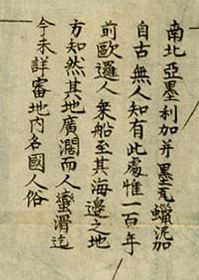 南北亞墨利加并墨瓦蠟泥加
自古無人知有此處惟一百年
前歐邏人乗船至其海邊之地
方知然其地廣濶而人蠻猾迄
今未詳審地内各國人俗